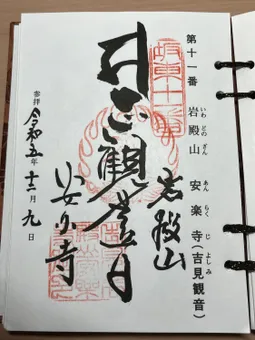 第十一番 岩殿山 安楽寺(吉見観音)
いわ どの さん あん らく じ よしみ
坂東十一番
岩殿山
正観世音
安楽寺
参拝 令和五年十二月九日